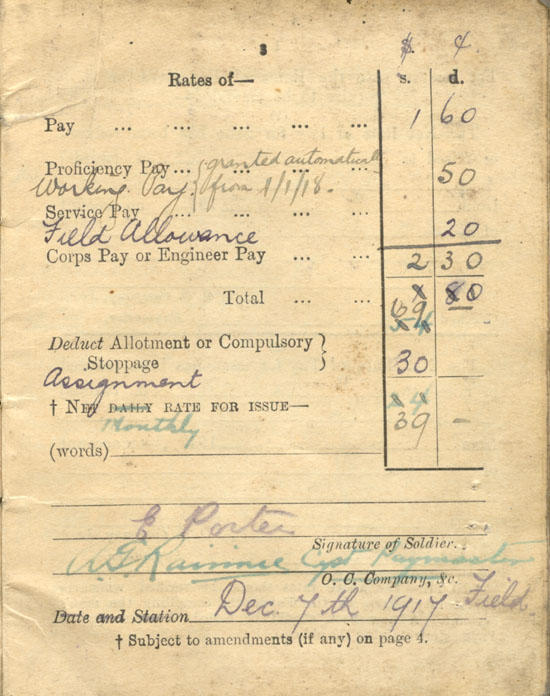 3
$ ¢
Rates of— s. d.
Pay ... ... ... ... ... 1 60
Proficiency Pay ... ... ... ... granted automatically 50
Working Pay from 1/1/18.
Service Pay ... ... ... ...
Field Allowance 20
Corps Pay or Engineer Pay ... ... 2 30
Total ... ... 80
69
54
Deduct Allotment or Compulsory
Stoppage 30
Assignment
† NET DAILY RATE FOR ISSUE— 24
Monthly 39 –
(words)
E Porter
Signature of Soldier.
Capt Paymaster
O. C. Company, &c.
Date and Station Dec 7th 1917 Field.
† Subject to amendments (if any) on page 4.